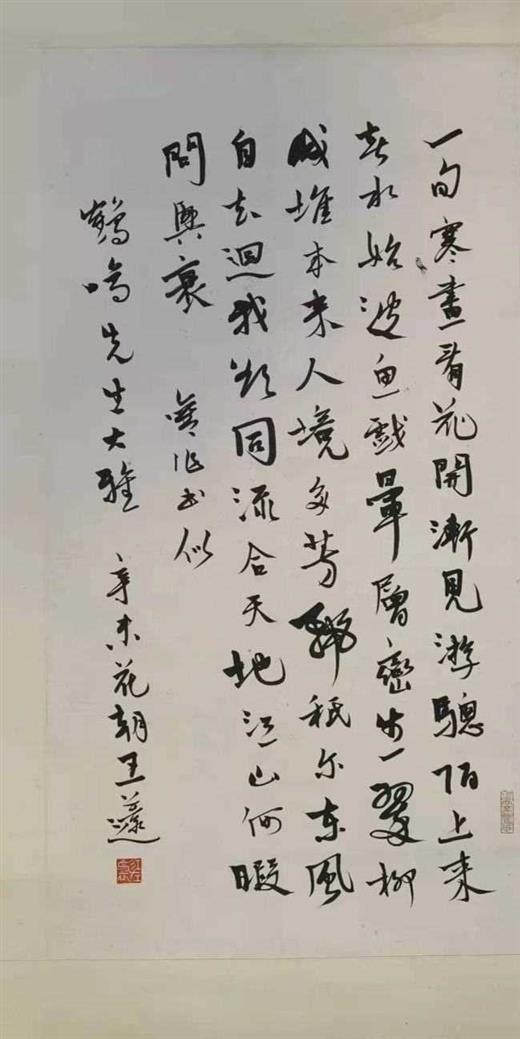 一旬寒盡看花開漸見游驄陌上來
春水始波魚戲暈層巒翠柳
成堆本來人境多芳秖尔東風
自去迴我欲同流合天地江山何暇
問興衰 舊作书似
鶴鳴先生大雅 辛未花朝王